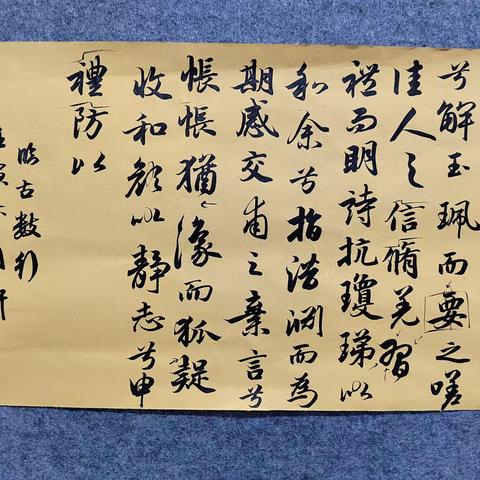 兮解玉珮而要之嗟
佳人之信脩羌習
禮而明詩抗瓊珶以
和余兮指潛淵而為
期感交甫之棄言兮
悵悵猶豫而狐疑
收和顏以靜志兮申
禮防以
臨古數行